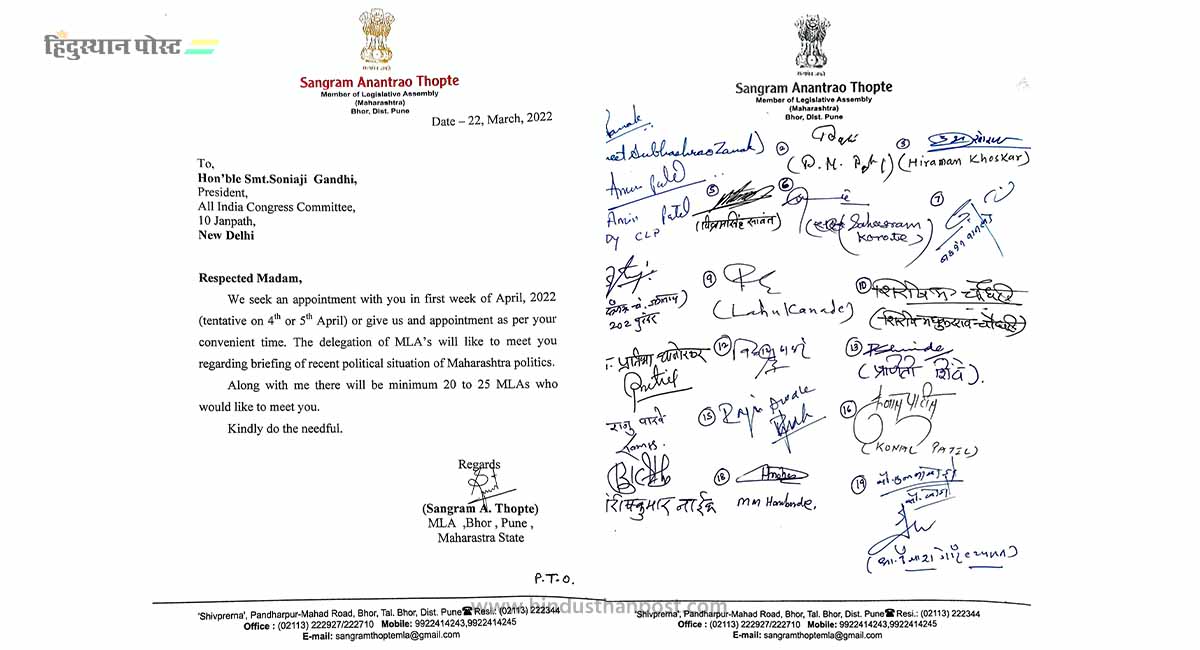 हिंदुस्थान पोस्ट
Sangram Anantrao Thopte
Member of Legislative Assembly
(Maharashtra)
Bhor, Dist. Pune
Date – 22, March, 2022
To,
Hon'ble Smt.Soniaji Gandhi,
President,
All India Congress Committee,
10 Janpath,
New Delhi
Respected Madam,
We seek an appointment with you in first week of April, 2022
(tentative on 4th or 5th April) or give us and appointment as per your
convenient time. The delegation of MLA's will like to meet you
regarding briefing of recent political situation of Maharashtra politics.
Along with me there will be minimum 20 to 25 MLAs who
would like to meet you.
Kindly do the needful.
Regards
(Sangram A. Thopte)
MLA ,Bhor , Pune ,
Maharastra State
P.T.O.
'Shivprerna', Pandharpur-Mahad Road, Bhor, Tal. Bhor, Dist. Pune☎ Resi.: (02113) 222344
Office : (02113) 222927/222710 Mobile: 9922414243,9922414245
E-mail: sangramthoptemla@gmail.com
Sangram Anantrao Thopte
Member of Legislative Assembly
(Maharashtra)
Bhor, Dist. Pune
eet Subhashrao Zanak)
②
③
(Hiraman Khoskar)
Amin Patel
Amin Patel
Dy CLP
⑤
(विक्रमसिंह सावंत)
⑥
Sahasram
Korote)
⑦
⑨
(Lahu Kanade)
⑩
प्रतिभा धानोरकर
⑫
⑬
(प्रणिती शिंदे).
राजु पारवे
⑮ Raju Awale
⑯
(KUNAL PATIL)
शिरिषकुमार नाईक
⑱
M M Hambarde.
⑲
'Shivprerna', Pandharpur-Mahad Road, Bhor, Tal. Bhor, Dist. Pune☎ Resi.: (02113) 222344
Office : (02113) 222927/222710 Mobile: 9922414243,9922414245
E-mail: sangramthoptemla@gmail.com
www.hindusthanpost.com